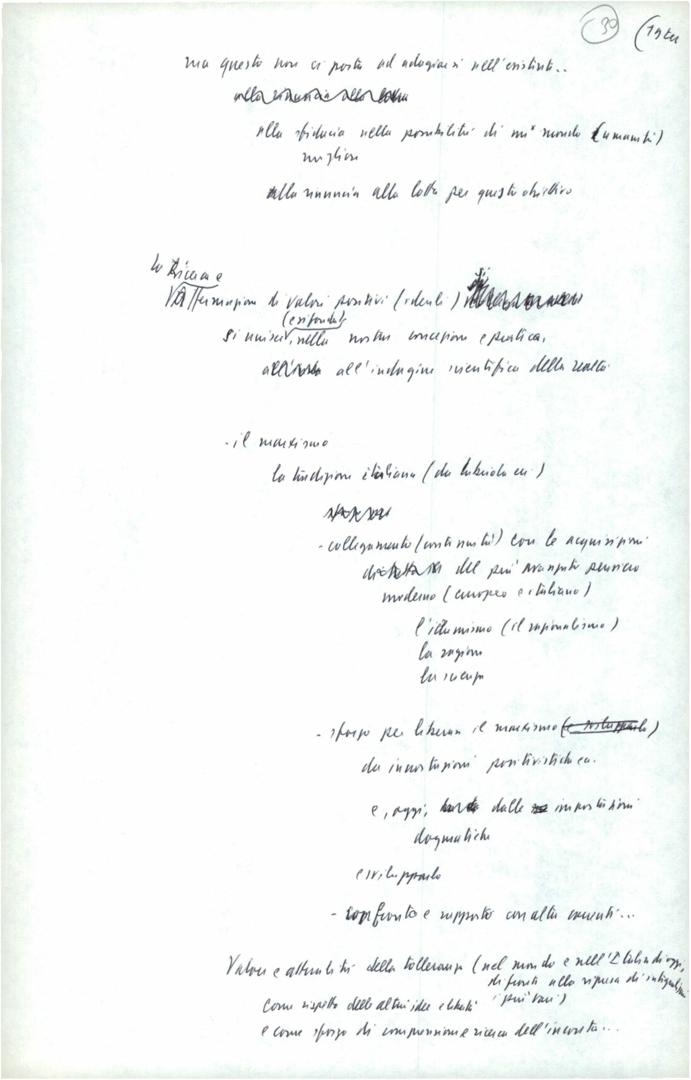 30
ma questo non ci porta ad adagiarci nell'esistente..
alla rinuncia alla lotta
alla sfiducia nella possibilità di un mondo (umanità)
migliore
alla rinuncia alla lotta per questo obiettivo
La Ricerca e
l'affermazione di valori positivi (ideali)
(e si fonda)
si unisce, nella nostra concezione e pratica,
all'indagine scientifica della realtà
- il marxismo
la tradizione italiana (da Labriola in)
- collegamento (continuità) con le acquisizioni
del più avanzato pensiero
moderno (europeo e italiano)
l'illuminismo (il razionalismo)
la ragione
la scienza
- sforzo per liberare il marxismo (e svilupparlo)
da incrostazioni positivistiche.
e, oggi, dalle incrostazioni
dogmatiche
e svilupparlo
- confronto e rapporto con altre correnti...
Valore e attualità della tolleranza (nel mondo e nell'Italia di oggi,
di fronte alla ripresa di integralismi
i più vari)
come rispetto delle altrui idee e libertà
e come sforzo di comprensione e ricerca dell'incontro...